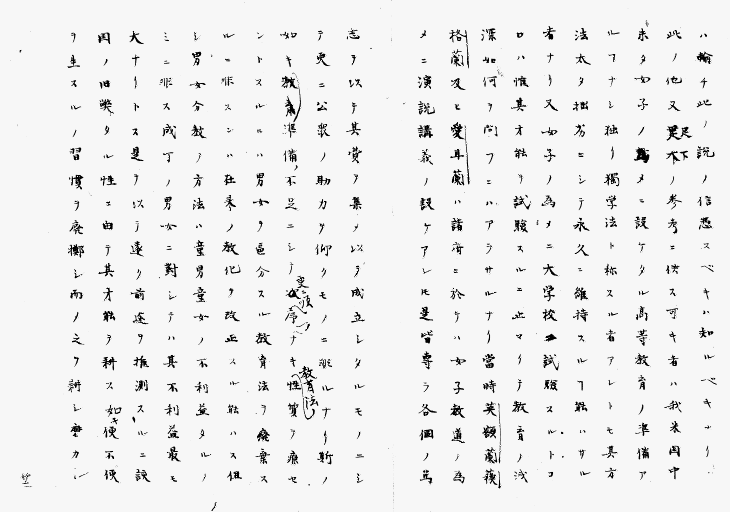 ハ輸チ此ノ説ノ信憑スベキハ知ルベキナリ
此ノ他又足下ノ参考ニ供ス可キ者ハ我米国中
未タ女子ノ為メニ設ケタル高等教育ノ準備ア
ルフナシ独リ獨学法ト称スル者アレトモ其方
法太タ拙劣ニシテ永久ニ維持スルフ能ハサル
者ナリ又女子ノ為メニ大学校ニ試験スルトコ
ロハ惟其才能ヲ試験スルニ止マリテ教育ノ浅
深如何ヲ問フニハアラサルナリ當時英額蘭蘇
格蘭及ヒ愛耳蘭ハ諸府ニ於テハ女子教道ノ為
メニ演説講義ノ設ケアレモ是皆専ラ各個ノ篤
志ヲ以テ其費ヲ集メ以テ成立シタルモノニシ
テ更ニ公衆ノ助力ヲ仰クモノニ非ルナリ斯ノ
如キ教育準備ノ不足ニシテ順序ナキ性質ヲ療セ
ントスルハ男女ヲ区分スル教育法ヲ廃棄ス
ルニ非スンハ在来ノ教化ヲ改正スル能ハス但
シ男女分教ノ方法ハ童男童女ノ不利益タルノ
ミニ非ス成丁ノ男女ニ対シテハ其不利益最モ
大ナリトス是ヲ以テ遠ク前途ヲ推測スルニ該
国ノ旧弊タル性ニ由テ其才能ヲ耕ス如キ便不便
ヲ生スルノ習慣ヲ廃擲シ而ノ之ヲ耕シ磨カシ
教育法